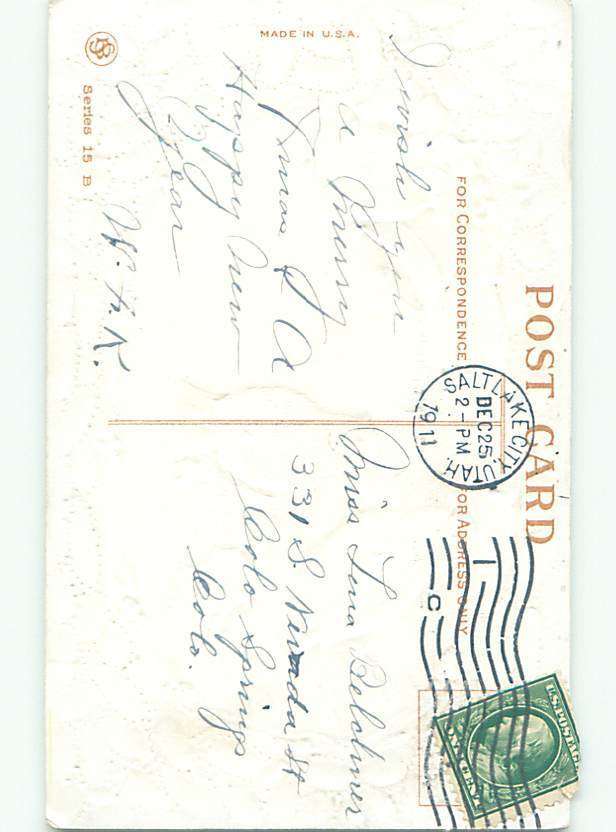 POST CARD
FOR CORRESPONDENCE
FOR ADDRESS ONLY
SALT LAKE CITY, UTAH.
DEC 25
2 - PM
1911
1
C
U.S. POSTAGE
I wish you
a Merry
Xmas & A
Happy New
Year
W. A. K.
Miss Lena Belchner
331 S Nevada St
Colo Springs
Colo.
MADE IN U.S.A.
SB
Series 15 B